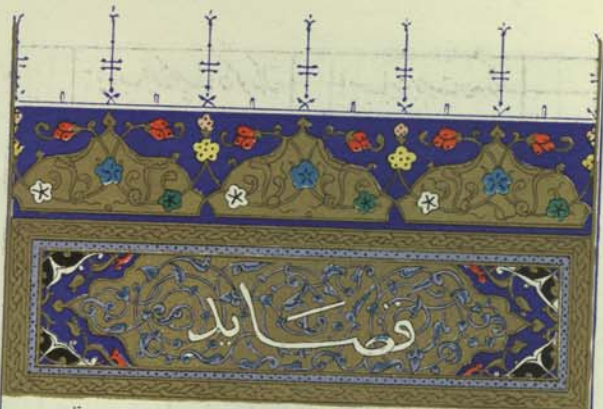 قصاید